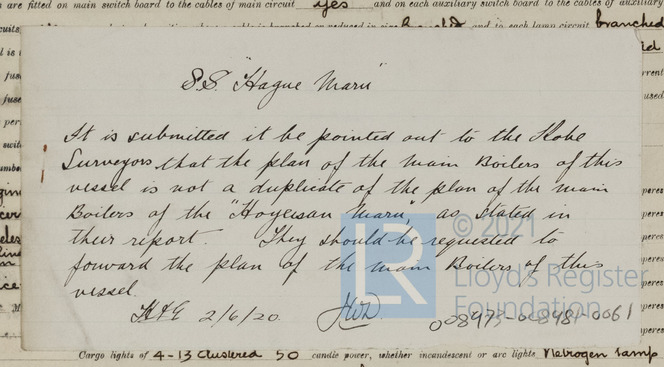 are fitted on main switch board to the cables of main circuit yes and on each auxiliary switch board to the cables of auxiliary
and to each lamp circuit branched
S.S. "Hague Maru"
It is submitted it be pointed out to the Kobe
Surveyors that the plan of the main Boilers of this
vessel is not a duplicate of the plan of the main
Boilers of the "Hoyeisan Maru", as stated in
their report. They should be requested to
forward the plan of the main Boilers of this
vessel.
2/6/20
008973-008981-0061
© 2021
LR
Lloyd's Register
Foundation
Cargo lights of 4-13 Clustered 50 candle power, whether incandescent or arc lights Nitrogen Lamp